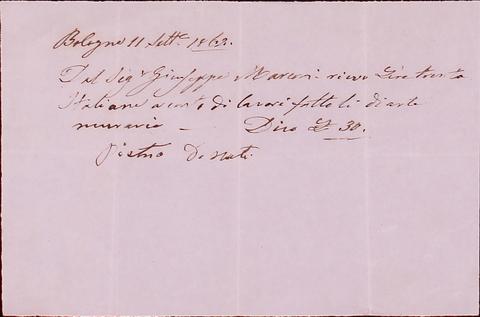 Bologna 11 Sett.e 1863.
Dal Sig.r Giuseppe Marconi ricevo Lire trenta
Italiane a conto di lavori fatto li di arte
muraria — Dico £ 30.
Pietro Donati